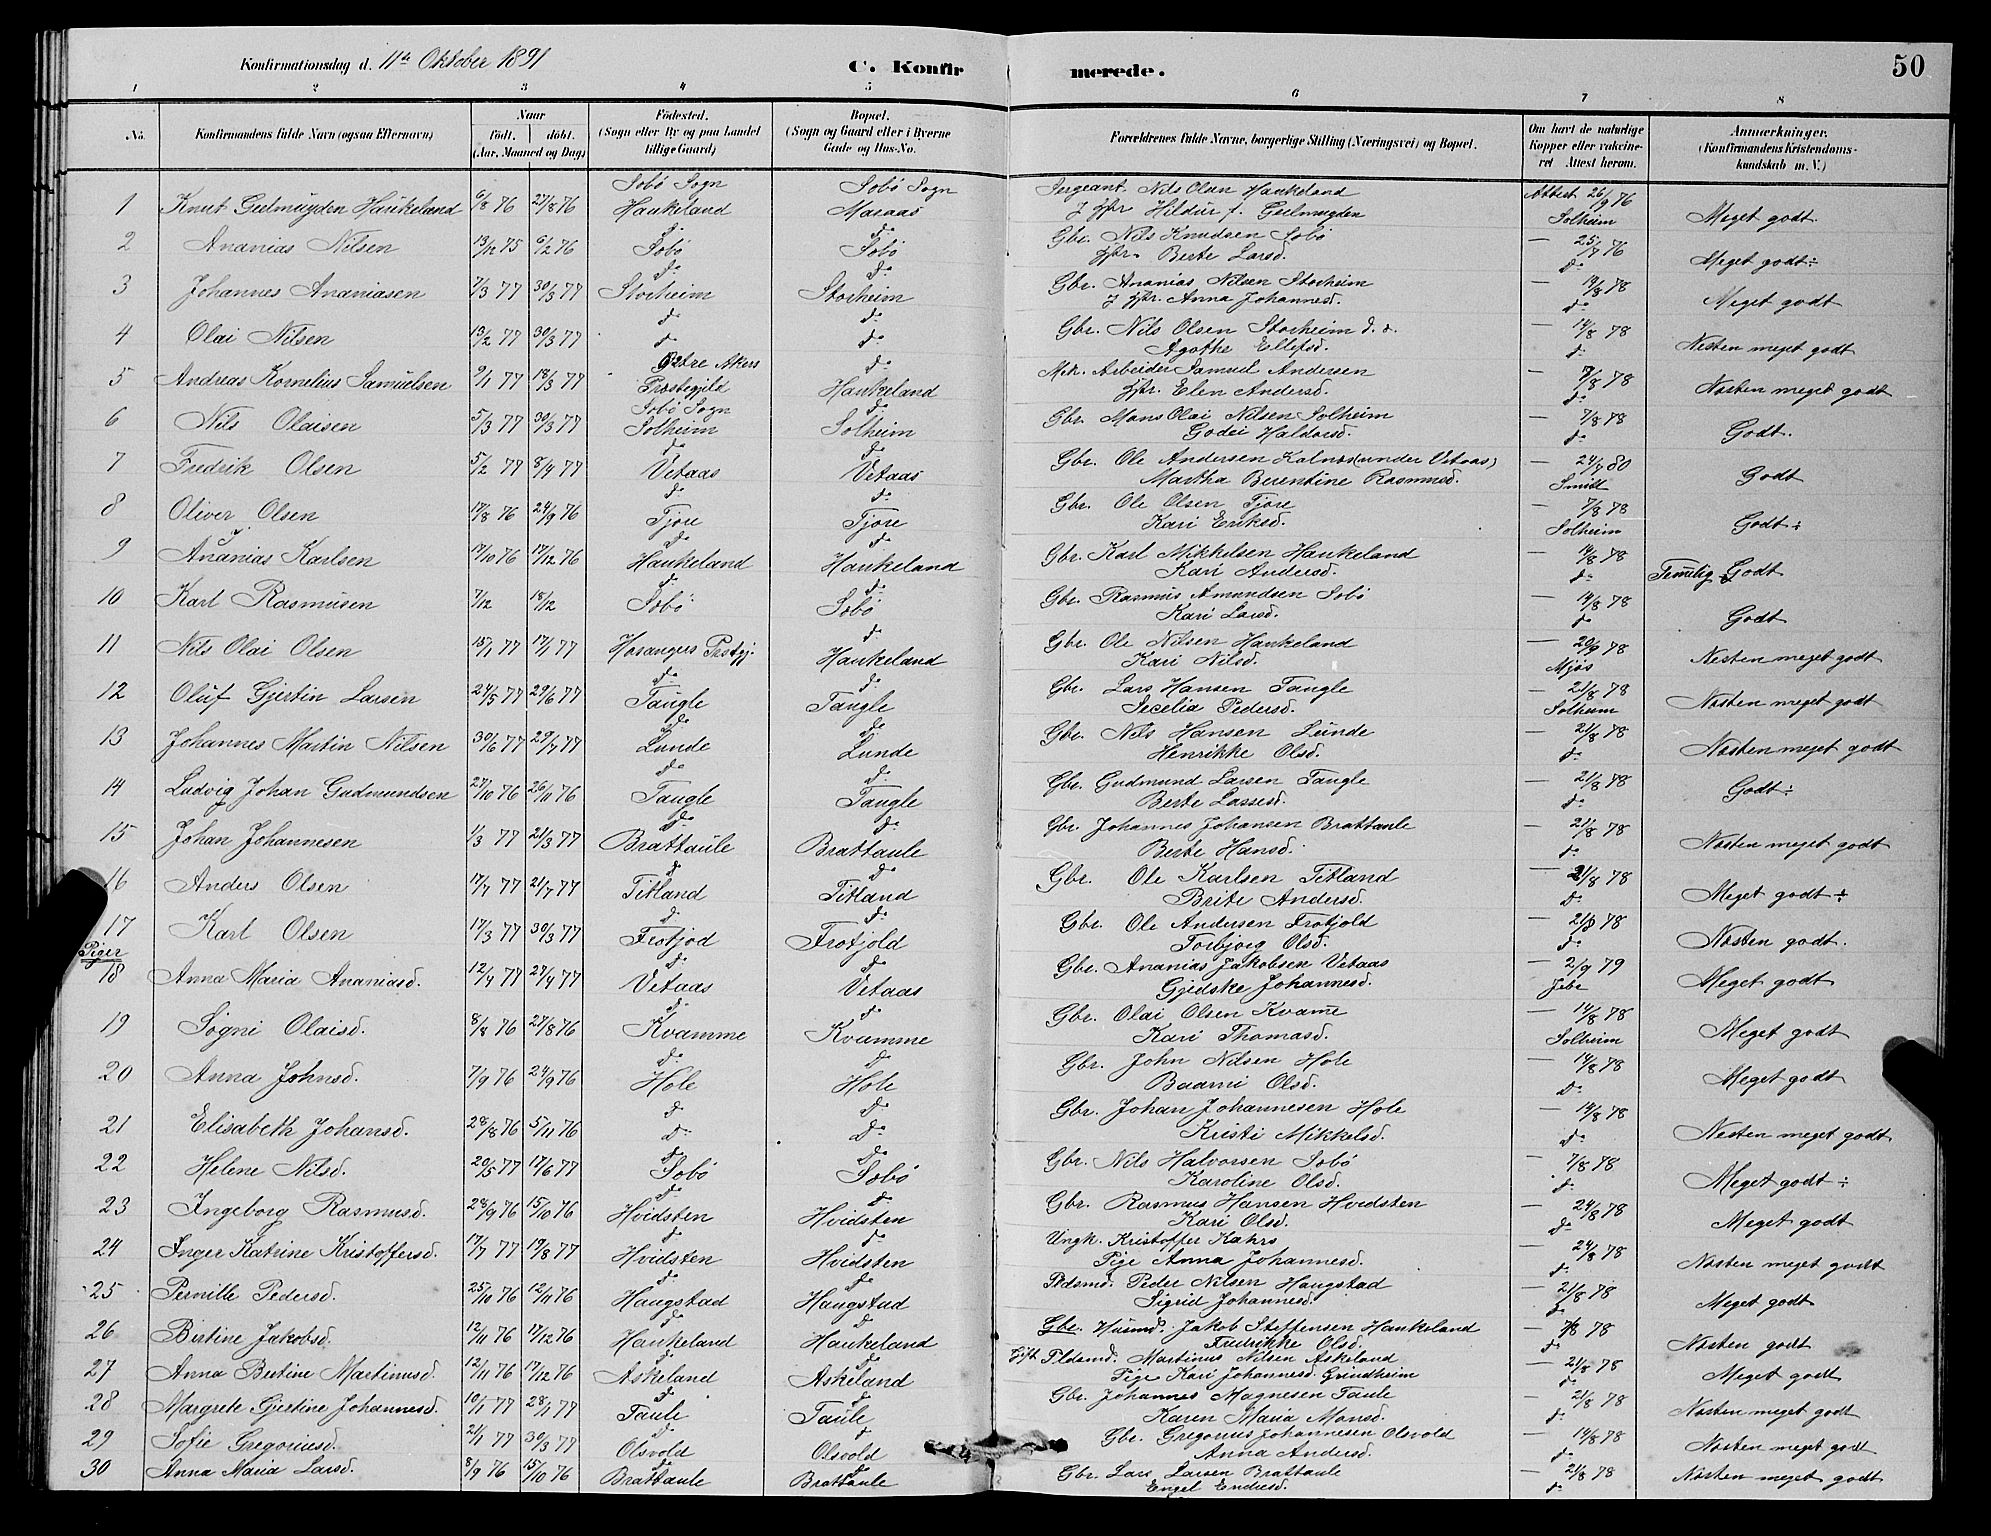 Konfirmationsdag d. 11te Oktober 1891 C. Konfirmerede. 50
1 2 3 4 5 6 7 8
No. Konfirmandens fulde Navn (ogsaa Efternavn) Naar født. døbt. (Aar, Maaned og Dag) Fødested. (Sogn eller By og paa Landet tillige Gaard) Bopæl. (Sogn og Gaard eller i Byerne Gade og Hus-No. Forældrenes fulde Navne, borgerlige Stilling (Næringsvei) og Bopæl. Om havt de naturlige Kopper eller vakcineret Attest herom. Anmærkninger. (Konfirmandens Kristendomskundskab m. V.)
1 Knut Geelmuyden Haukeland 6/8 76 27/8 76 Sebø Sogn Haukeland Sebø Sogn Maraas Sergeant Nils Olsen Haukeland Hildur f. Geelmuyden Attest 26/9 76 Solheim Meget godt
2 Ananias Nilsen 13/12 75 6/2 76 do Sebø do Sebø Gbr. Nils Knudsen Sebø Berte Larsd. — 25/7 76 do Meget godt ÷
3 Johannes Ananiasen 7/3 77 30/3 77 do Storheim do Storheim Gbr. Ananias Nilsen Storheim Anna Johannesd. — 14/8 78 do Meget godt
4 Olai Nilsen 13/2 77 30/3 77 do do Gbr. Nils Olsen Storheim Agothe Ellefsd. — 14/8 78 do Nesten meget godt
5 Andreas Kornelius Samuelsen 9/1 77 18/3 77 Østre Akers Præstegjeld do Haukeland Arbeider Samuel Andersen Elen Andersd. — 7/8 78 do Næsten meget godt
6 Nils Olaisen 5/3 77 30/3 77 Sebø Sogn Solheim do Solheim Gbr. Mons Olai Nilsen Solheim Godei Haldorsd. — 7/8 78 do Godt.
7 Fredrik Olsen 5/2 77 8/4 77 do Vetaas do Vetaas Gbr. Ole Andersen Kalnes (under Vetaas) Martha Berentine Rasmusd. — 24/7 80 Smidt Godt
8 Oliver Olsen 17/8 76 24/9 76 do Fjore do Fjore Gbr. Ole Olsen Fjore Kari Eriksd. — 7/8 78 Solheim Godt ÷
9 Ananias Karlsen 17/10 76 17/12 76 do Haukeland do Haukeland Gbr. Karl Mikkelsen Haukeland Kari Andersd. — 14/8 78 do Temmelig Godt
10 Karl Rasmusen 7/12 18/12 do Sebø do Sebø Gbr. Rasmus Amundsen Sebø Kari Larsd. — 14/8 78 do Godt
11 Nils Olai Olsen 15/1 77 17/1 77 Hosangers Prstgj. do Haukeland Gbr. Ole Nilsen Haukeland Kari Nilsd. — 20/9 78 Mjøs Nesten meget godt
12 Oluf Gjertin Larsen 24/5 77 29/6 77 do Taugle do Taugle Gbr. Lars Hansen Taugle Secelia Pedersd. — 21/8 78 Solheim Næsten meget godt
13 Johannes Martin Nilsen 30/6 77 29/7 77 do Lunde do Lunde Gbr. Nils Hansen Lunde Henrikke Olsd. — 21/8 78 do Næsten meget godt
14 Ludvig Johan Gudmundsen 27/10 76 26/11 76 do Taugle do Taugle Gbr. Gudmund Larsen Taugle Berte Lassesd. — 21/8 78 do Godt ÷
15 Johan Johannesen 1/3 77 21/3 77 do Brattaule do Brattaule Gbr. Johannes Johansen Brattaule Berte Hansd. — 21/8 78 do Næsten meget godt
16 Anders Olsen 17/7 77 21/7 77 do Titland do Titland Gbr. Ole Karlsen Titland Brite Andersd. — 21/8 78 do Meget godt ÷
17 Karl Olsen 17/3 77 30/3 77 do Frotjod do Frotjold Gbr. Ole Andersen Frotjold Torbjorg Olsd. — 21/8 78 do Næsten godt.
Piger
18 Anna Maria Ananiasd. 12/4 77 27/4 77 do Vetaas do Vetaas Gbr. Ananias Jakobsen Vetaas Gjedske Johannesd. — 2/9 79 Jebe Meget godt
19 Søgni Olaisd. 8/8 76 27/8 76 do Kvamme do Kvamme Gbr. Olai Olsen Kvamme Kari Thomasd. — 14/8 78 Solheim Meget godt
20 Anna Johnsd. 7/9 76 24/9 76 do Hole do Hole Gbr. John Nilsen Hole Baarni Olsd. — 14/8 78 do Meget godt
21 Elisabeth Johansd. 28/8 76 5/11 76 do do Gbr. Johan Johannesen Hole Kristi Mikkelsd. — 14/8 78 do Nesten meget godt
22 Helene Nilsd. 20/5 77 17/6 77 do Sebø do Sebø Gbr. Nils Halvorsen Sebø Karoline Olsd. — 7/8 78 do Meget godt ÷
23 Ingeborg Rasmusd. 28/9 76 15/10 76 do Hvidsten do Hvidsten Gbr. Rasmus Hansen Hvidsten Kari Olsd. — 24/8 78 do Meget godt
24 Inger Katrine Kristoffersd. 17/7 77 19/8 77 do Hvidsten do Hvidsten Ungk. Kristoffer Kahrs Pige Anna Johannesd. — 24/8 78 do Næsten meget godt
25 Pernille Pedersd. 25/10 76 12/11 76 do Haugstad do Haugstad Pldsmd. Peder Nilsen Haugstad Sigrid Johannesd. — 21/8 78 do Meget godt
26 Bertine Jakobsd. 12/11 76 17/12 76 do Haukeland do Haukeland Gbr. Husmd. Jakob Steffensen Haukeland Fredrikke Olsd. — 7/8 78 do Næsten godt
27 Anna Bertine Martinusd. 12/11 76 17/12 76 do Askeland do Askeland Gift Pldsmd. Martinus Nilsen Askeland Pige Kari Johannesd. Grindheim — 21/8 78 do Meget godt
28 Margrete Gjertine Johannesd. 10/1 77 28/1 77 do Taule do Taule Gbr. Johannes Magnesen Taule Karen Maria Monsd. — 21/8 78 do Næsten meget godt
29 Sofie Gregoriusd. 2/1 77 30/3 77 do Olsvold do Olsvold Gbr. Gregorius Johannesen Olsvold Anna Andersd. — 14/8 78 do Næsten meget godt
30 Anna Maria Larsd. 8/9 76 15/10 76 do Brattaule do Brattaule Gbr. Lars Larsen Brattaule Engel Endresd. — 21/8 78 do Næsten meget godt